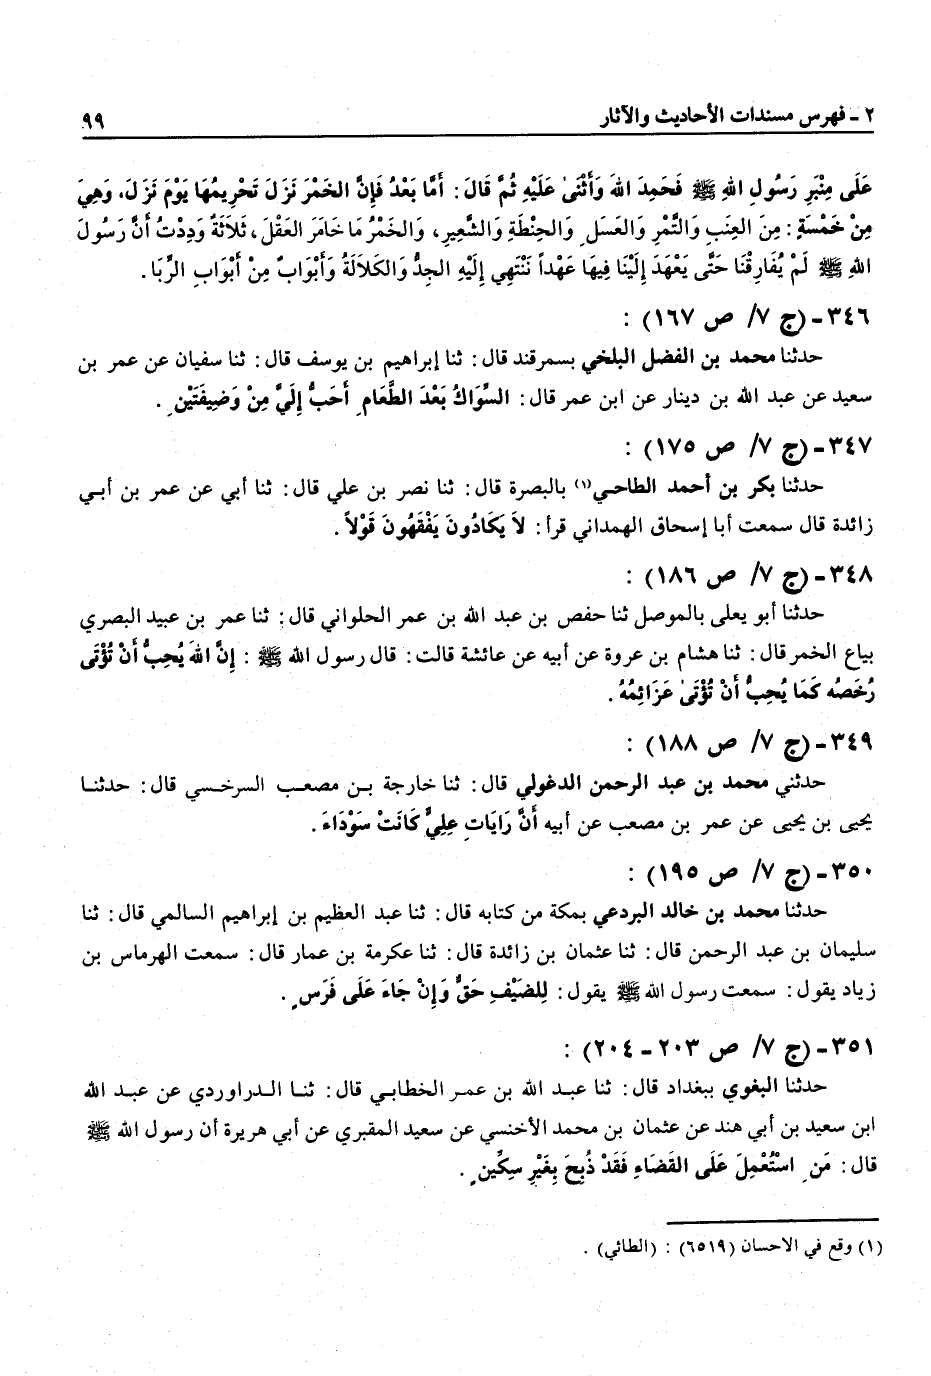 ٢ - فهرس مسندات الأحاديث والآثار ٩٩
عَلَى مِنْبَرِ رَسُولِ اللهِ ﷺ فَحَمِدَ اللهَ وَأَثْنَىٰ عَلَيْهِ ثُمَّ قَالَ: أَمَّا بَعْدُ فَإِنَّ الخَمْرَ نَزَلَ تَحْرِيمُهَا يَوْمَ نَزَلَ، وَهِيَ
مِنْ خَمْسَةٍ: مِنَ العِنَبِ وَالتَّمْرِ وَالعَسَلِ وَالحِنْطَةِ وَالشَّعِيرِ، وَالخَمْرُ مَا خَامَرَ العَقْلَ، ثَلَاثَةٌ وَدِدْتُ أَنَّ رَسُولَ
اللهِ ﷺ لَمْ يُفَارِقْنَا حَتَّى يَعْهَدَ إِلَيْنَا فِيهَا عَهْداً نَنْتَهِي إِلَيْهِ الجِدُّ وَالكَلَالَةُ وَأَبْوَابٌ مِنْ أَبْوَابِ الرِّبَا.
٣٤٦ - (ج ٧/ ص ١٦٧) :
حدثنا محمد بن الفضل البلخي بسمرقند قال: ثنا إبراهيم بن يوسف قال: ثنا سفيان عن عمر بن
سعيد عن عبد الله بن دينار عن ابن عمر قال: السِّوَاكُ بَعْدَ الطَّعَامِ أَحَبُّ إِلَيَّ مِنْ وَضِيفَتَيْنِ.
٣٤٧ - (ج ٧/ ص ١٧٥) :
حدثنا بكر بن أحمد الطاحي(١) بالبصرة قال: ثنا نصر بن علي قال: ثنا أبي عن عمر بن أبي
زائدة قال سمعت أبا إسحاق الهمداني قرأ: لاَ يَكَادُونَ يَفْقَهُونَ قَوْلاً.
٣٤٨ - (ج ٧/ ص ١٨٦) :
حدثنا أبو يعلى بالموصل ثنا حفص بن عبد الله بن عمر الحلواني قال: ثنا عمر بن عبيد البصري
بياع الخمر قال: ثنا هشام بن عروة عن أبيه عن عائشة قالت: قال رسول الله ﷺ: إِنَّ اللهَ يُحِبُّ أَنْ تُؤْتَى
رُخَصُه كَمَا يُحِبُّ أَنْ تُؤْتَىٰ عَزَائِمُهُ.
٣٤٩ - (ج ٧/ ص ١٨٨) :
حدثني محمد بن عبد الرحمن الدغولي قال: ثنا خارجة بن مصعب السرخسي قال: حدثنا
يحيى بن يحيى عن عمر بن مصعب عن أبيه أَنَّ رَايَاتِ عَلِيٍّ كَانَتْ سَوْدَاءَ.
٣٥٠ - (ج ٧/ ص ١٩٥) :
حدثنا محمد بن خالد البردعي بمكة من كتابه قال: ثنا عبد العظيم بن إبراهيم السالمي قال: ثنا
سليمان بن عبد الرحمن قال: ثنا عثمان بن زائدة قال: ثنا عكرمة بن عمار قال: سمعت الهرماس بن
زياد يقول: سمعت رسول الله ﷺ يقول: لِلضَيْفِ حَقٌّ وَإِنْ جَاءَ عَلَى فَرَسٍ.
٣٥١ - (ج ٧/ ص ٢٠٣ - ٢٠٤) :
حدثنا البغوي ببغداد قال: ثنا عبد الله بن عمر الخطابي قال: ثنا الدراوردي عن عبد الله
ابن سعيد بن أبي هند عن عثمان بن محمد الأخنسي عن سعيد المقبري عن أبي هريرة أن رسول الله ﷺ
قال: مَنِ اسْتُعْمِلَ عَلَى القَضَاءِ فَقَدْ ذُبِحَ بِغَيْرِ سِكِّينٍ.
(١) وقع في الاحسان (٦٥١٩) : (الطائي) .